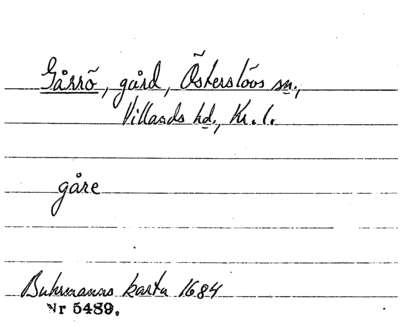 Gårrö, gård, Österslövs sn.,
Villands hd., Kr. l.
gåre
Buhrmanns karta 1684
Nr 5489.